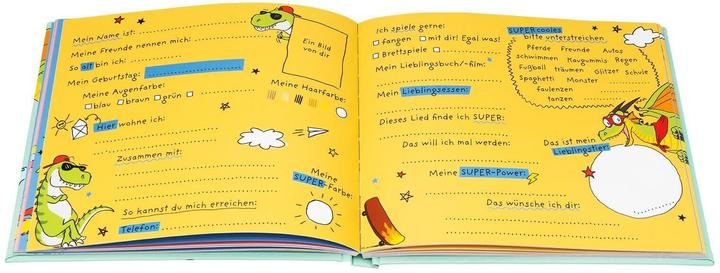 Mein Name ist:
Meine Freunde nennen mich:
So alt bin ich:
Mein Geburtstag:
Meine Augenfarbe:
blau braun grün
Ein Bild
von dir
Meine Haarfarbe:
Hier wohne ich:
Zusammen mit:
Meine
SUPER-Farbe:
So kannst du mich erreichen:
Telefon:
Ich spiele gerne:
fangen mit dir! Egal was!
Brettspiele
Mein Lieblingsbuch/-film:
Mein Lieblingsessen:
Dieses Lied finde ich SUPER:
Das will ich mal werden:
Meine SUPER-Power:
Das wünsche ich dir:
SUPERcooles
bitte unterstreichen
Pferde Freunde Autos
schwimmen Kaugummis Regen
Fußball träumen Glitzer Schule
Spaghetti Monster
faulenzen
tanzen
Das ist mein
Lieblingstier: